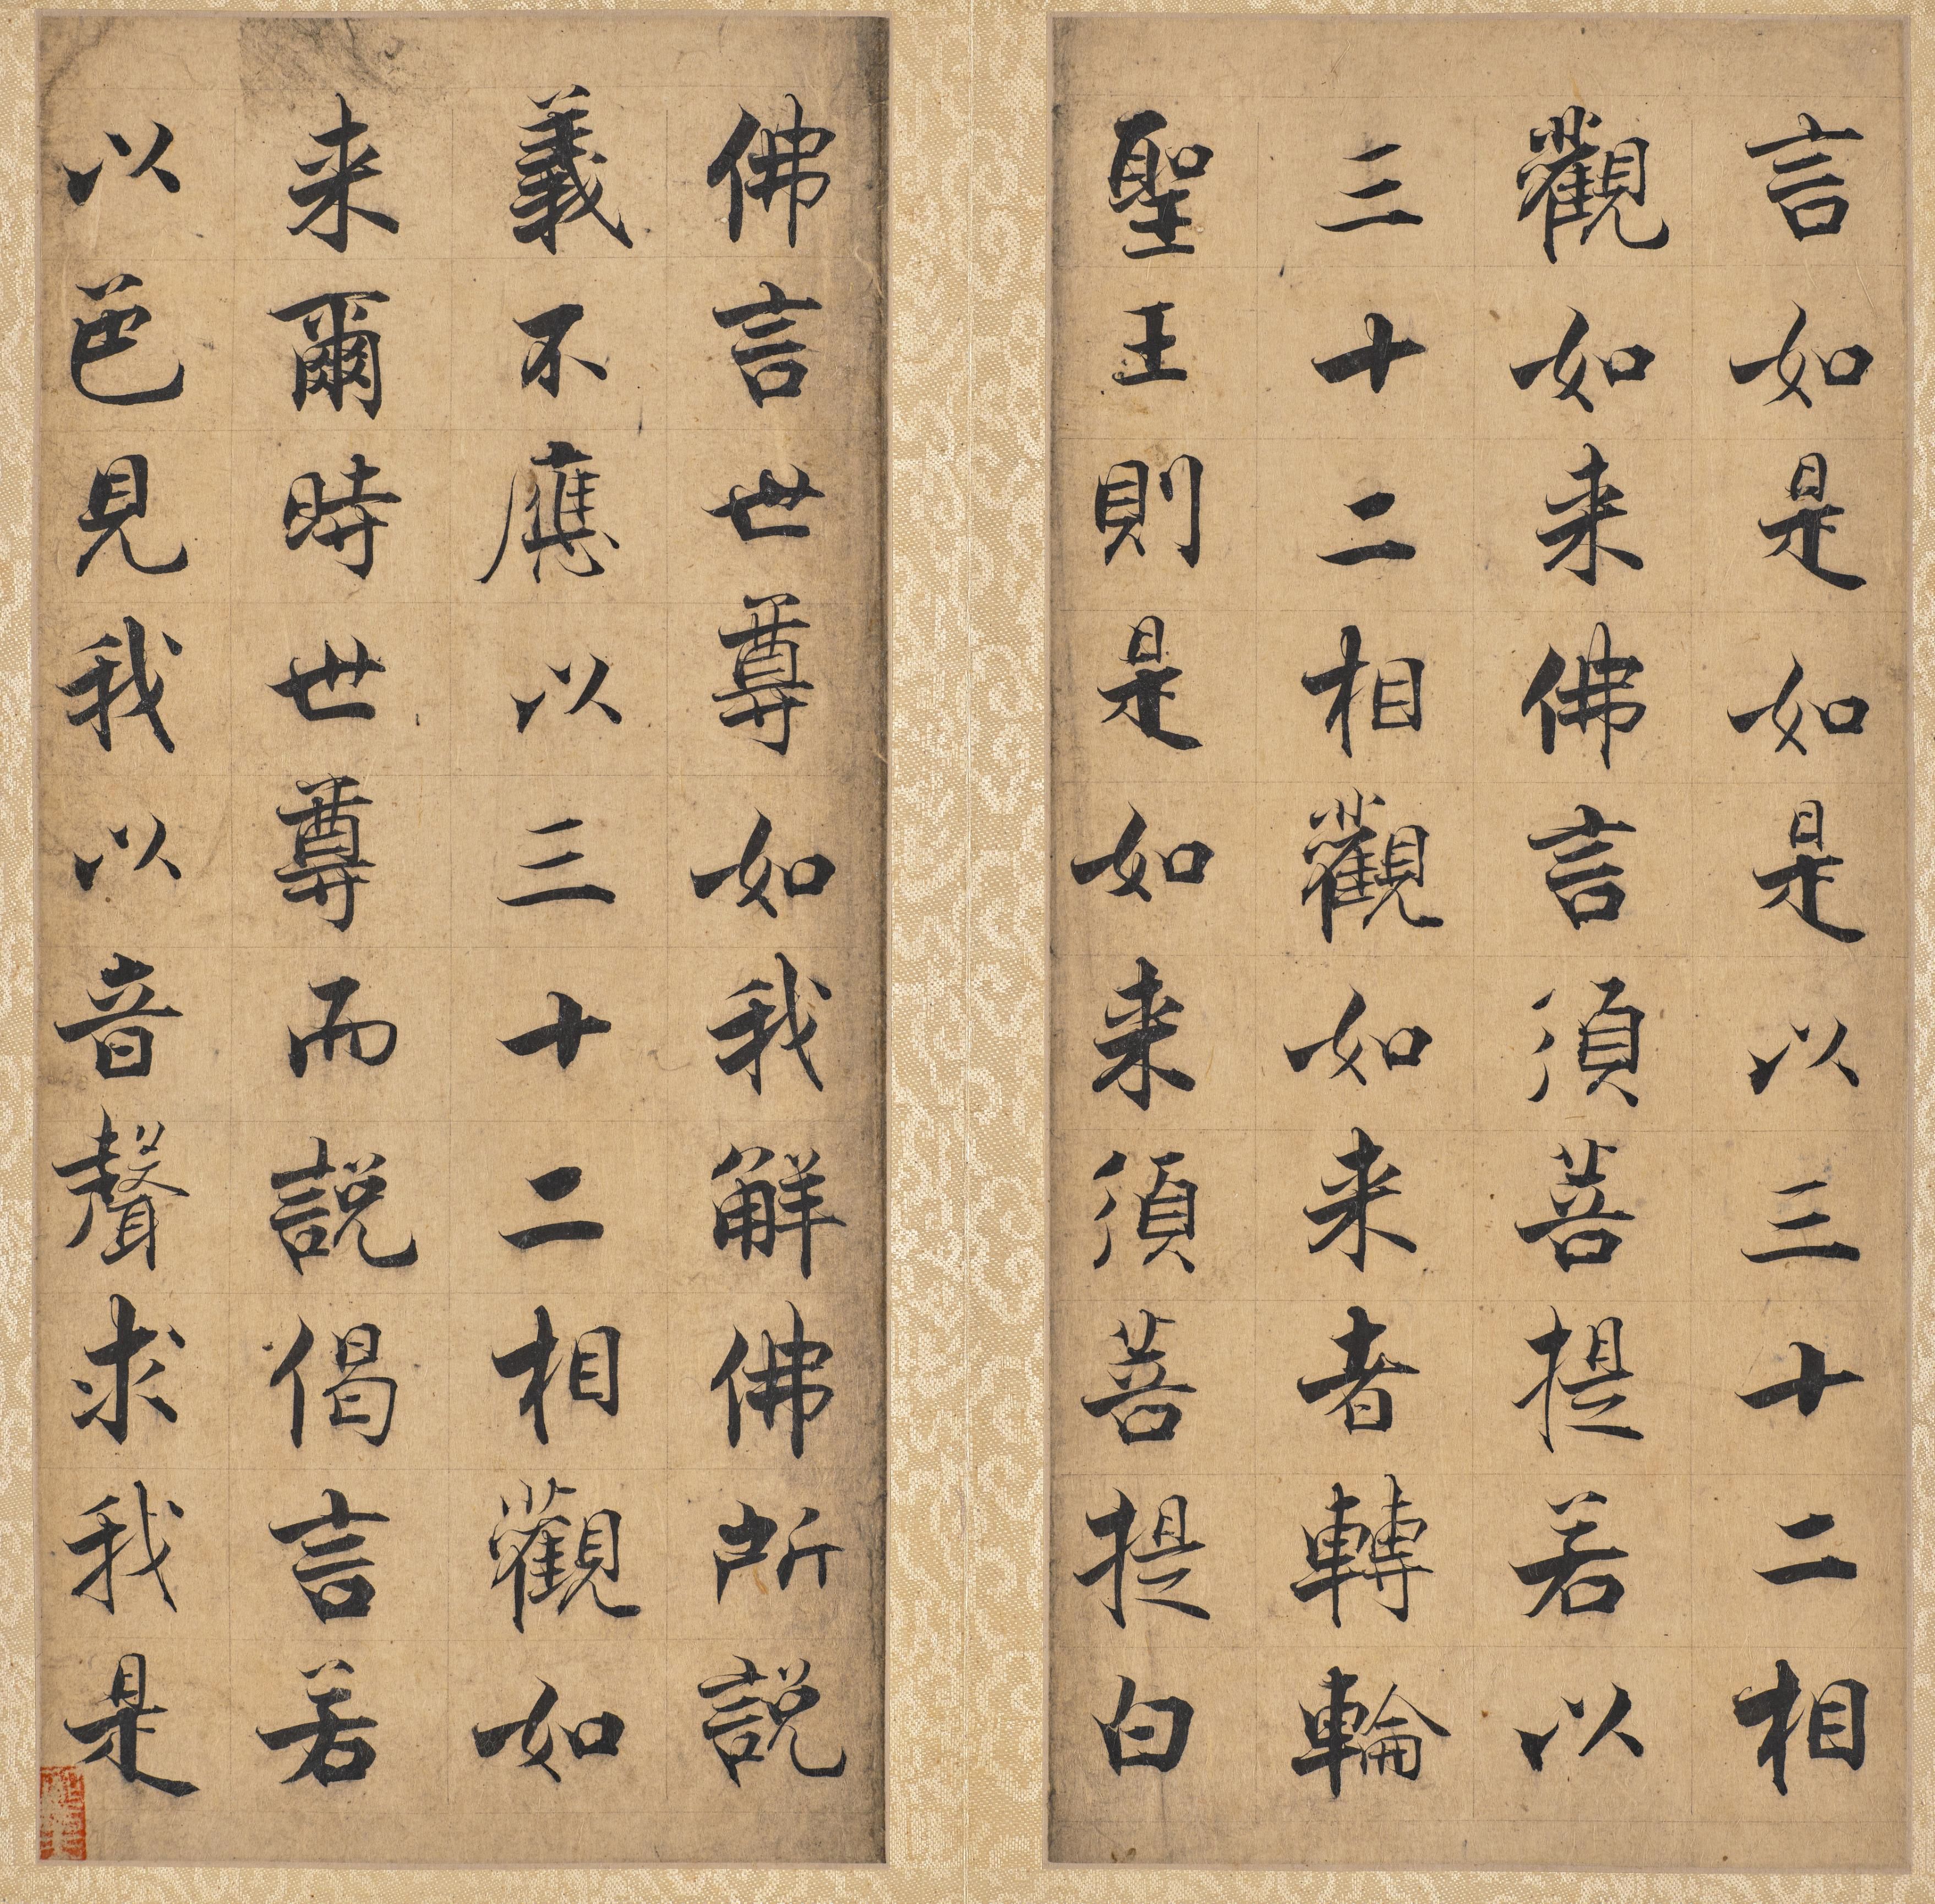 言如是如是以三十二相
觀如来佛言須菩提若以
三十二相觀如来者轉輪
聖王則是如来須菩提白
佛言世尊如我解佛所説
義不應以三十二相觀如
来爾時世尊而説偈言若
以色見我以音聲求我是